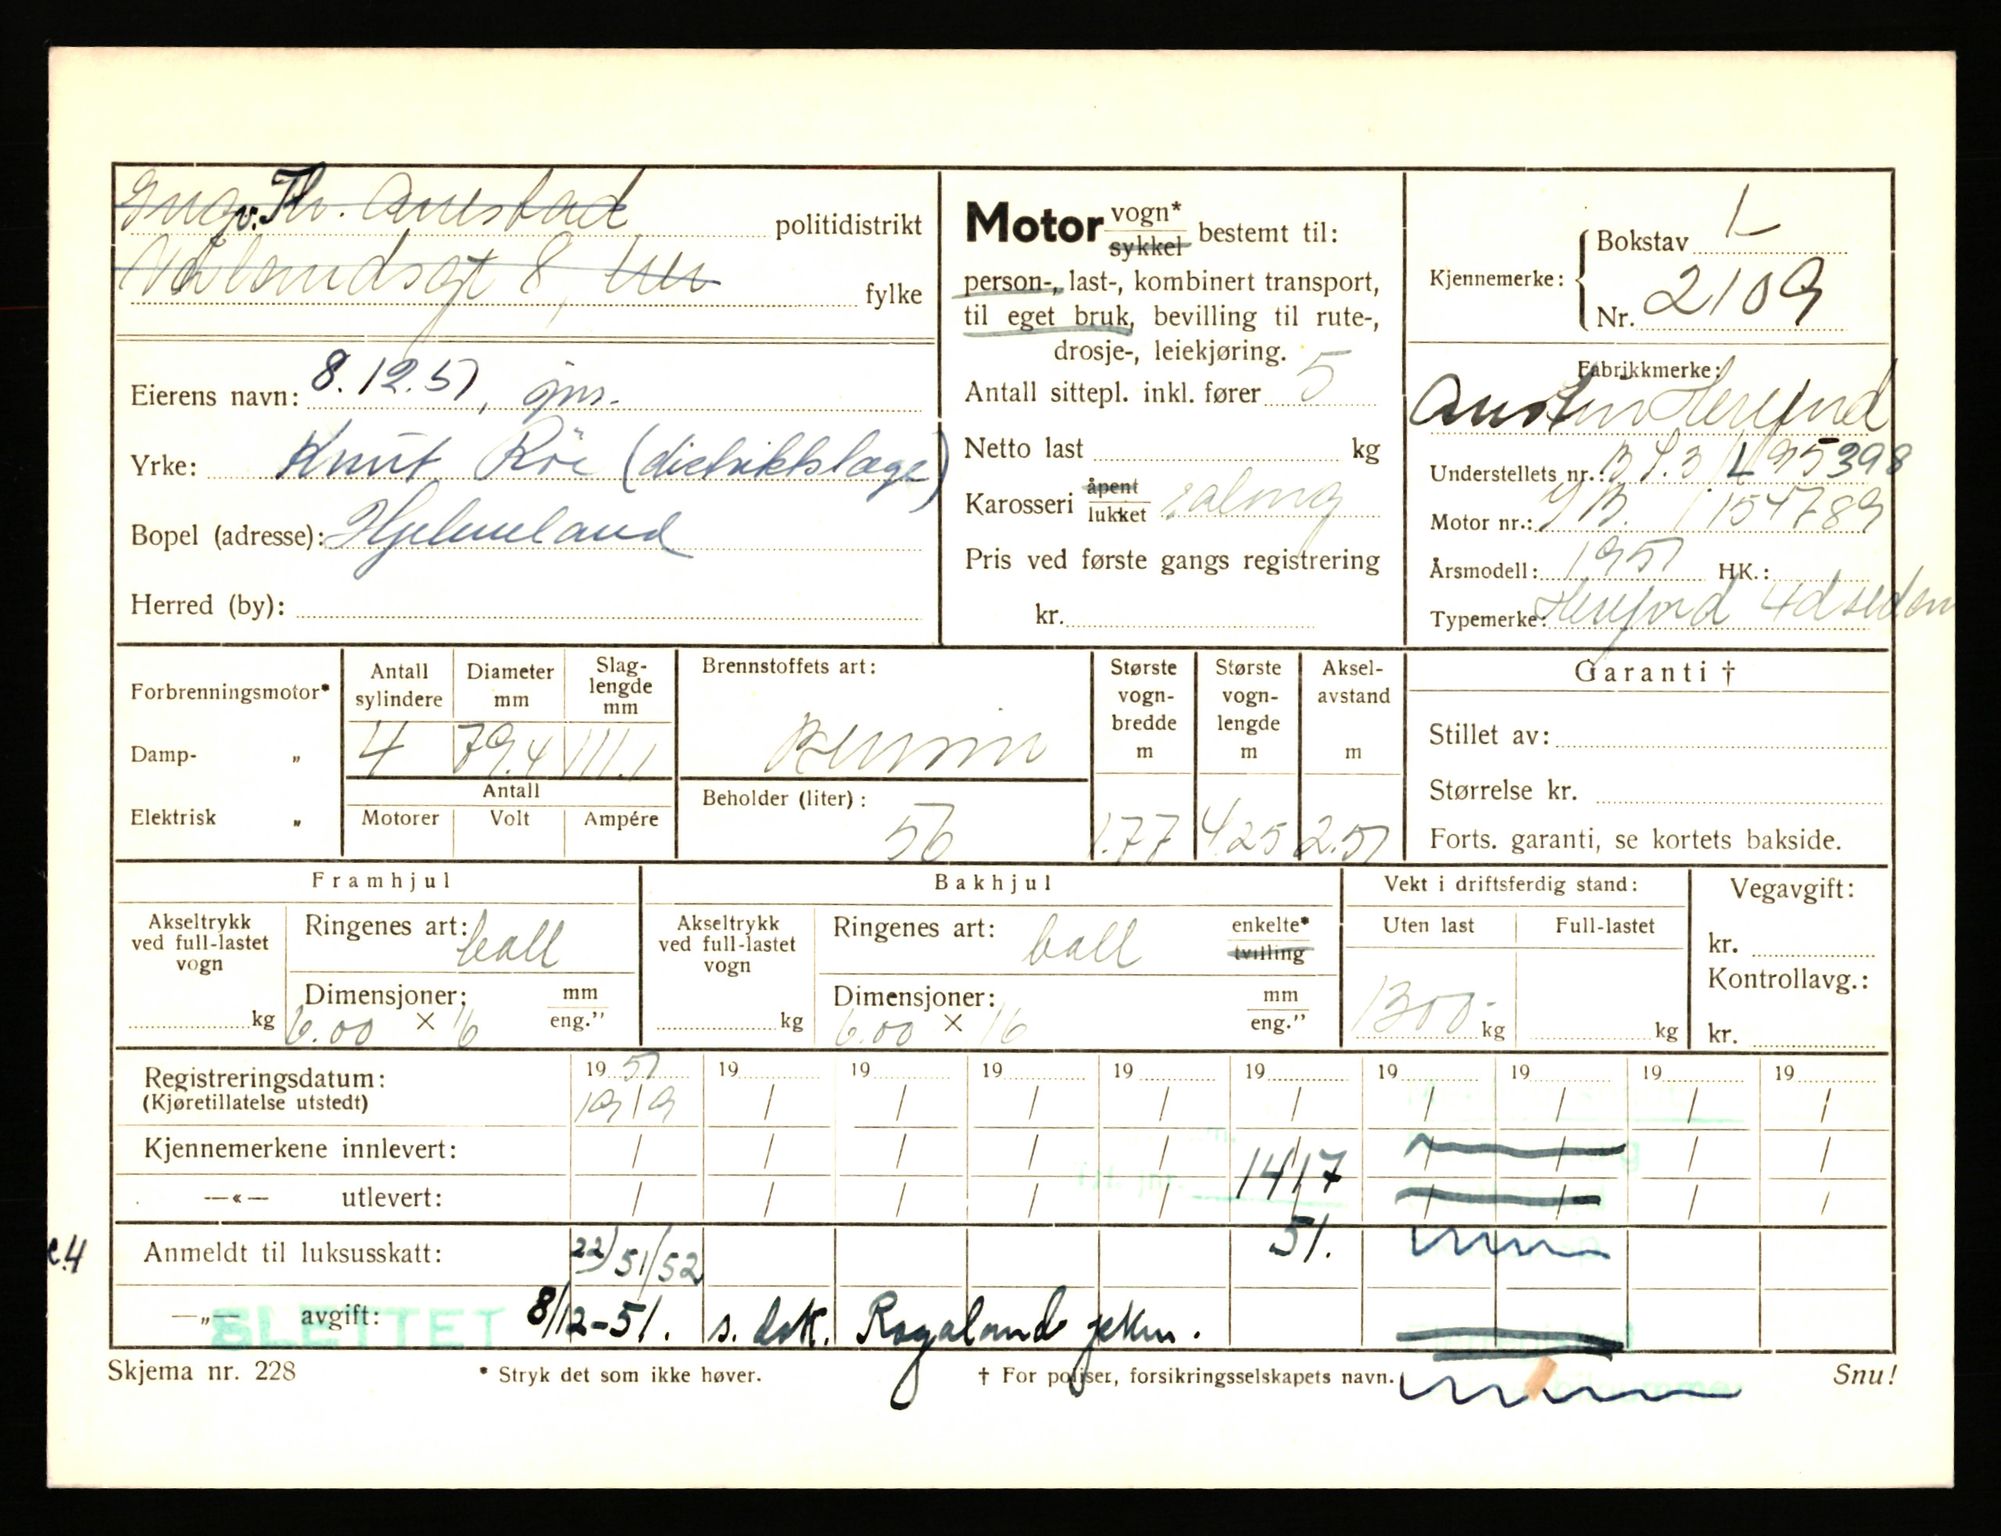 Ingv. Th. Aurstad politidistrikt
8, fylke
Eierens navn: 8.12.51, gjns.
Yrke: Knut Röe (distriktslæge)
Bopel (adresse): Hjelmeland
Herred (by):
Motor vogn* sykkel bestemt til:
person-, last-, kombinert transport,
til eget bruk, bevilling til rute-,
drosje-, leiekjøring.
Antall sittepl. inkl. fører 5
Netto last kg
Karosseri åpent lukket
Pris ved første gangs registrering
kr.
Kjennemerke: Bokstav L
Nr. 2109
Fabrikkmerke:
Austin Hereford
Understellets nr.: B S.3 L 95398
Motor nr.: 1B. 154789
Årsmodell: 1951 HK.:
Typemerke: Hereford 4d sedan
Forbrenningsmotor*
Damp- „
Elektrisk „
Antall sylindere
4
Diameter mm
79.4
Slag-lengde mm
111.1
Antall
Motorer Volt Ampére
Brennstoffets art:
Bensin
Beholder (liter):
56
Største vogn-bredde m
1.77
Største vogn-lengde m
4.25
Aksel-avstand m
2.51
Garanti †
Stillet av:
Størrelse kr.
Forts. garanti, se kortets bakside.
Framhjul
Akseltrykk ved full-lastet vogn
kg
Ringenes art: ball
Dimensjoner: mm
6.00 × 16 eng."
Bakhjul
Akseltrykk ved full-lastet vogn
kg
Ringenes art: ball enkelte* tvilling
Dimensjoner: mm
6.00 × 16 eng."
Vekt i driftsferdig stand:
Uten last Full-lastet
1300- kg kg
Vegavgift:
kr.
Kontrollavg.:
kr.
Registreringsdatum: 19 51 19 19 19 19 19 19 19 19 19
(Kjøretillatelse utstedt) 19/9 / / / / / / / / /
Kjennemerkene innlevert: / / / / / 14/7 / / / /
—«— utlevert: / / / / / / / / / /
51.
e.4
Anmeldt til luksusskatt: 22/51/52
—„— avgift: 8/12-51. s. dok. Rogaland pkm.
SLETTET
Skjema nr. 228 * Stryk det som ikke høver. † For poliser, forsikringsselskapets navn. Snu!